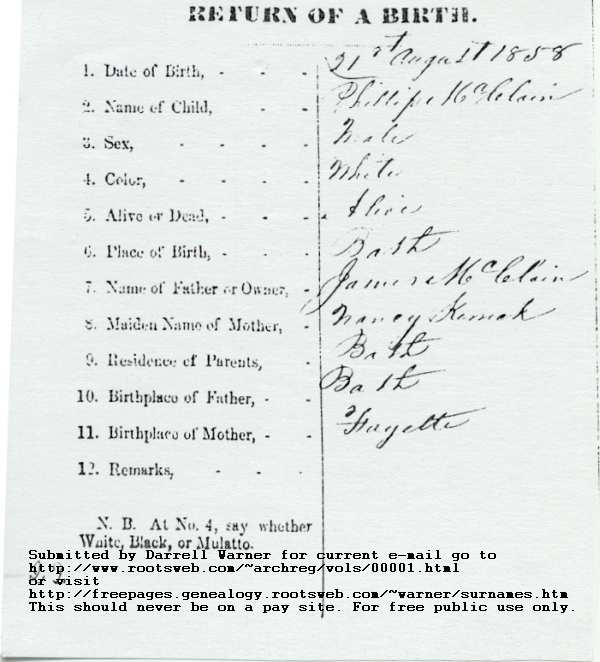 RETURN OF A BIRTH.
1. Date of Birth, - - - 21st August 1858
2. Name of Child, - - Phillipe McClain
3. Sex, - - - - Male
4. Color, - - - - White
5. Alive or Dead, - - - Alive
6. Place of Birth, - - - Bath
7. Name of Father or Owner, - James McClain
8. Maiden Name of Mother, - Nancy
9. Residence of Parents, - Bath
10. Birthplace of Father, - - Bath
11. Birthplace of Mother, - - Fayette
12. Remarks, - - -
N. B. At No. 4, say whether
White, Black, or Mulatto.
Submitted by Darrell Warner for current e-mail go to
http://www.rootsweb.com/~archreg/vols/00001.html
or visit
http://freepages.genealogy.rootsweb.com/~warner/surnames.htm
This should never be on a pay site. For free public use only.